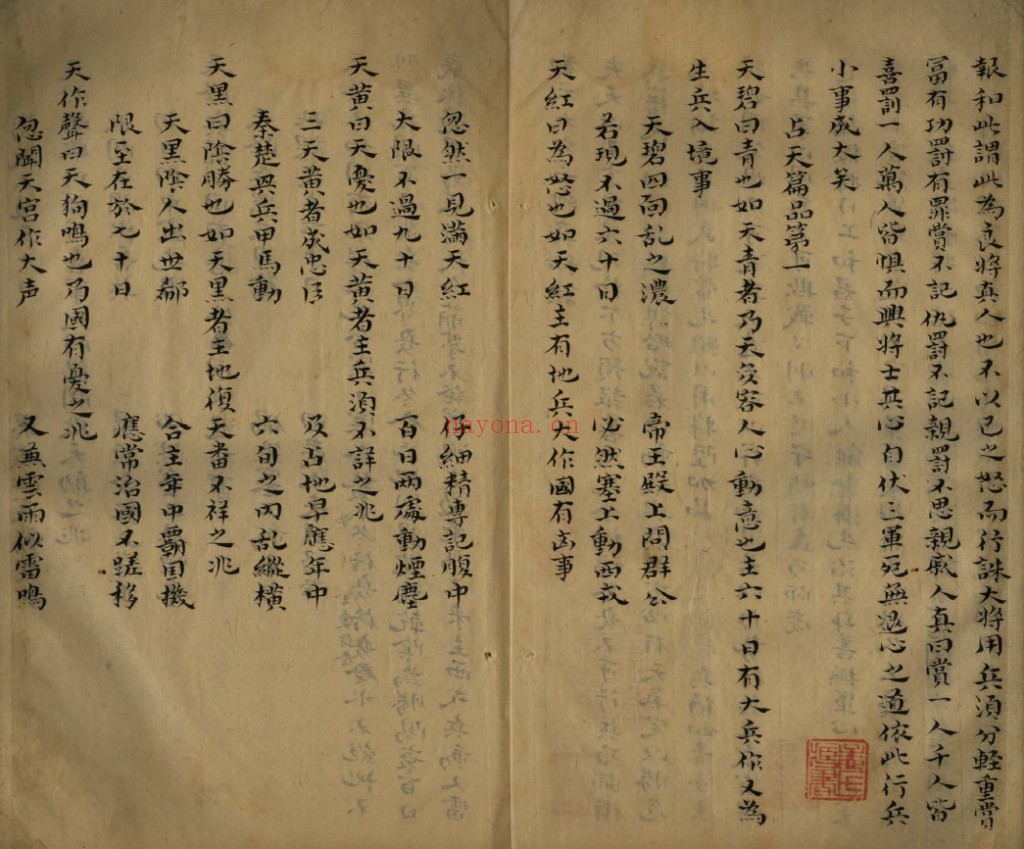 報和此謂此為良将真人也不以己之怒而行誅大将用兵須分輕重賞
冨有功罰有罪賞不記仇罰不記親罰不思親戚人真曰賞一人千人皆
喜罰一人萬人皆惧而興将士其心自伏三軍宛無退心之道依此行兵
小事成大矣
占天篇品第一
天碧曰青也如天青者乃天変容人心動意也主六十日有大兵作又為
生兵入境事
天碧四面乱之濃 帝王殿上問群公
若現不過六十日 必然塞上動西戎
天紅曰為怒也如天紅主有地兵大作國有凶事
忽然一見滿天紅 仔細精專記腹中
大限不過九十日 百日両處動煙塵
天黄曰天憂也如天黄者主兵須不詳之兆
三天黄者成忠臣 及占地早應年中
秦楚興兵甲馬動 六旬之内乱縱横
天黑曰陰勝也如天黑者主地復天畨不祥之兆
天黑陰人出世都 合主年中覇国機
限至在於七十日 應常治國不蹉移
天作聲曰天狗鳴也乃國有憂之兆
忽聞天宫作大声 又無雲雨似雷鳴
nayona.cn